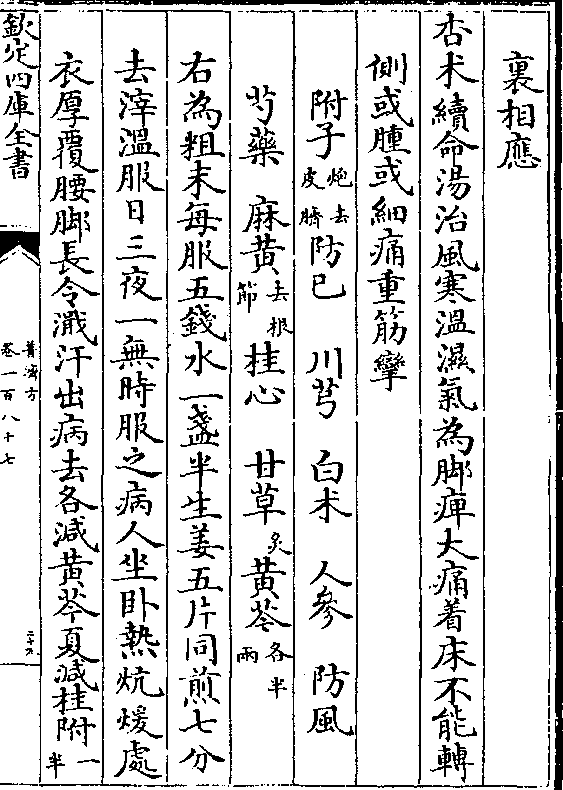 裏相應
杏朮續命湯治風寒溫濕氣為脚痺大痛着床不能轉
側或腫或細痛重筋攣
附子炮去皮臍 防已 川芎 白朮 人參 防風
芍藥 麻黄去根節 桂心 甘草炙 黄芩各半兩
右為粗末每服五錢水一盞半生姜五片同煎七分
去滓溫服日三夜一無時服之病人坐卧熱炕煖處
衣厚覆腰脚長令濈汗出病去各減黄芩夏減桂附一半
欽定四庫全書
普濟方
卷一百八十七
二十六